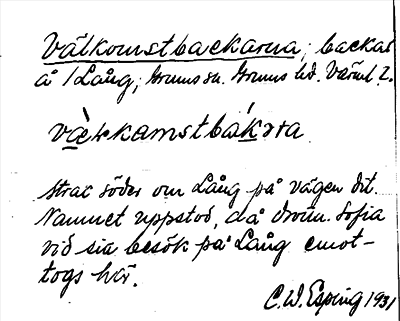 Välkomstbackarna, backar
å /Lång, Grums sn. Grums hd. Värml.
vä̀lkamstbákra
strax söder om Lång på vägen dit.
Namnet uppstod, då drottn. Sofia
vid sia besök på Lång emot-
togs här.
C.W. Esping 1931